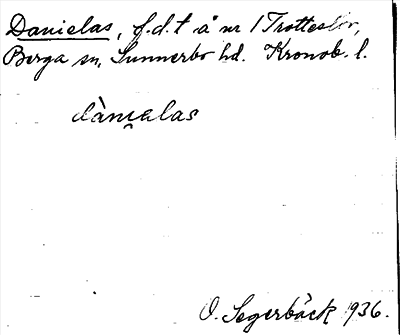 Danielas, f.d.t å nr 1 Trotteslöv,
Berga sn, Sunnerbo hd. Kronob. l.
dàni̯elas
O. Segerbäck 1936.